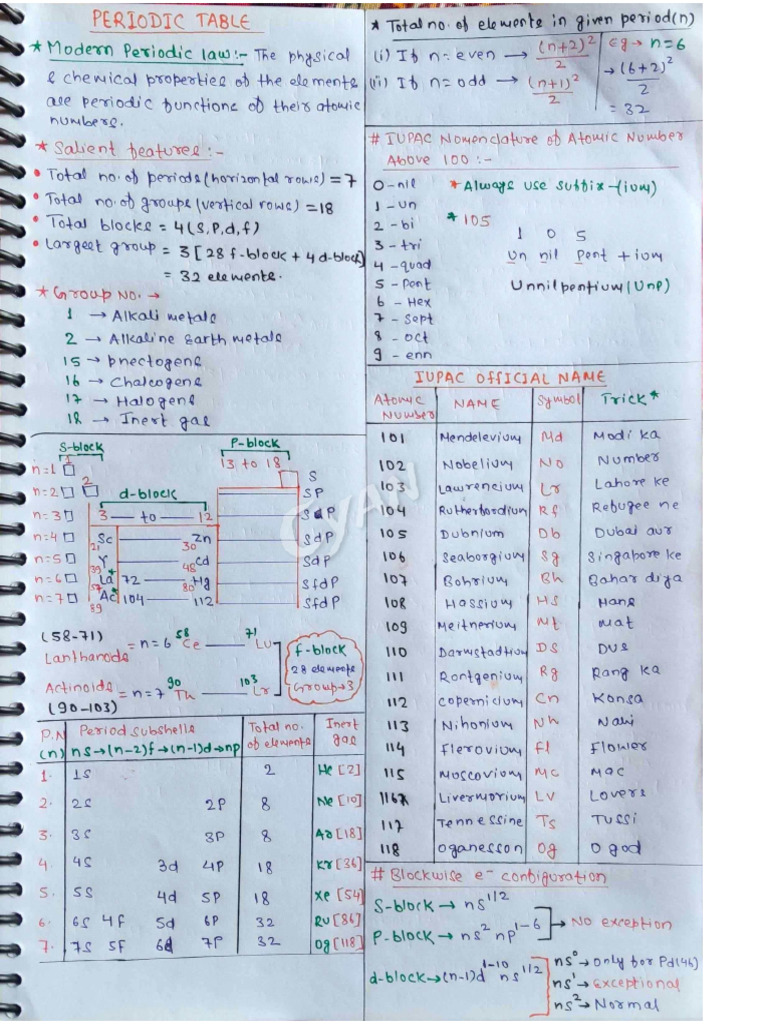 PERIODIC TABLE
* Modern Periodic law:- The physical
& chemical properties of the elements
are periodic functions of their atomic
numbers.
* Salient features :-
• Total no. of periods (horizontal rows) = 7
• Total no. of groups (vertical rows) = 18
• Total blocks = 4 (s, p, d, f)
• Largest group = 3 [28 f-block + 4 d-block]
= 32 elements.
* Group No. →
1 → Alkali metals
2 → Alkaline Earth metals
15 → pnectogens
16 → Chalcogens
17 → Halogens
18 → Inert gas
S-block
P-block
1
13 to 18
n=1
S
2
n=2
d-block
SP
n=3
3 — to — 12
SdP
n=4
Sc
21
Zn
30
SdP
n=5
Y
39
Cd
48
SdP
n=6
La*
57
72 — Hg
80
SfdP
n=7
Ac*
89
104 — 112
SfdP
(58-71)
Lanthanods
= n=6 58 Ce — 71 Lu
Actinoids
= n=7 90 Th — 103 Lr
(90-103)
f-block
28 elements
Group→3
P.N (n)
Period subshells
ns→(n-2)f→(n-1)d→np
Total no. of elements
Inert gas
1. 1S 2 He [2]
2. 2S 2P 8 Ne [10]
3. 3S 3P 8 Ar [18]
4. 4S 3d 4P 18 Kr [36]
5. 5S 4d 5P 18 Xe [54]
6. 6S 4f 5d 6P 32 Ru [86]
7. 7S 5f 6d 7P 32 Og [118]
* Total no. of elements in given period (n)
(i) If n = even → (n+2)²/2
Eg → n=6
(ii) If n = odd → (n+1)²/2
→ (6+2)²/2
= 32
# IUPAC Nomenclature of Atomic Number
Above 100 :-
0 - nil
* Always use suffix - (ium)
1 - un
2 - bi
* 105
3 - tri
1 0 5
4 - quad
Un nil Pent + ium
5 - pent
Unnilpentium (Unp)
6 - Hex
7 - Sept
8 - oct
9 - enn
IUPAC OFFICIAL NAME
Atomic Number NAME Symbol Trick*
101 Mendelevium Md Modi ka
102 Nobelium No Number
103 Lawrencium Lr Lahore ke
104 Rutherfordium Rf Refugee ne
105 Dubnium Db Dubai aur
106 Seaborgium Sg Singapore ke
107 Bohrium Bh Bahar diya
108 Hassium HS Hans
109 Meitnerium Mt mat
110 Darmstadtium DS Dus
111 Rontgenium Rg Rang ka
112 Copernicium Cn Konsa
113 Nihonium Nh Nahi
114 Flerovium Fl Flower
115 Moscovium Mc Mac
116 Livermorium LV Lovers
117 Tennessine Ts Tussi
118 Oganesson Og O god
# Blockwise e⁻ configuration
S-block → ns¹/²
P-block → ns² np¹⁻⁶
→ No exception
d-block → (n-1)d¹⁻¹⁰ ns¹/²
ns⁰ → only for Pd (46)
ns¹ → Exceptional
ns² → Normal
CYAN